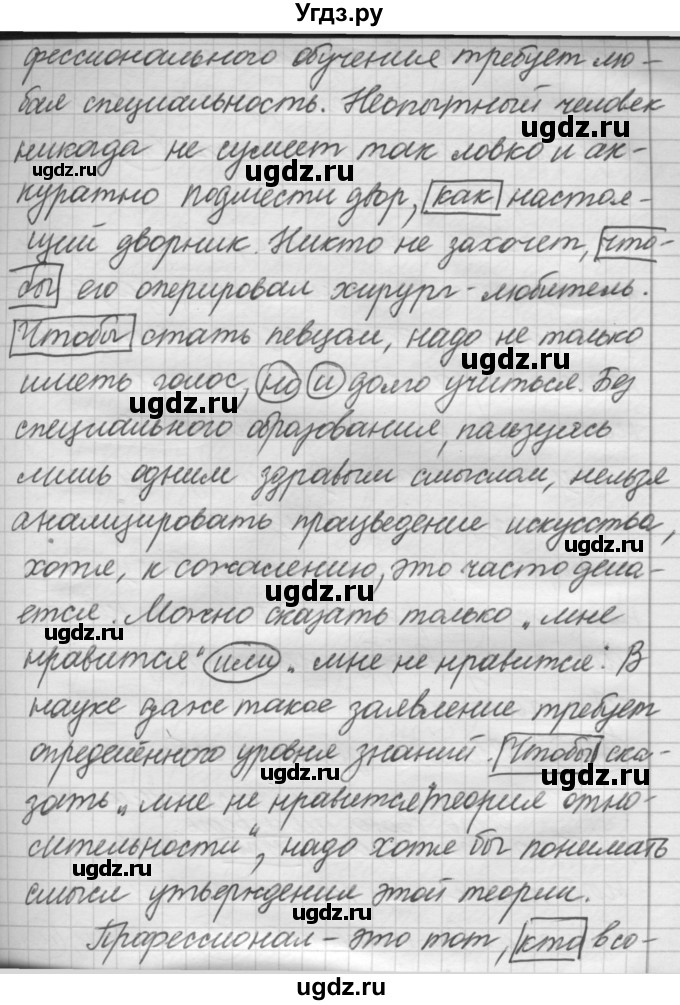 Угдз.ру
фессионального обучения требует лю-
бая специальность. Неопытный человек
ugdz.ru ugdz.ru
никогда не сумеет так ловко и ак-
куратно подмести двор, как настоя-
ugdz.ru
щий дворник. Никто не захочет, что-
бы его оперировал хирург-любитель.
Чтобы стать певцом, надо не только
ugdz.ru
иметь голос, но и долго учиться. Без
ugdz.ru
специального образования, пользуясь
лишь одним здравым смыслом, нельзя
анализировать произведение искусства,
ugdz.ru
хотя, к сожалению, это часто дела-
ugdz.ru
ется. Можно сказать только „мне
ugdz.ru
нравится“ или „мне не нравится“. В
науке даже такое заявление требует
определённого уровня знаний. Чтобы ска-
ugdz.ru
зать „мне не нравится теория отно-
сительности“, надо хотя бы понимать
ugdz.ru ugdz.ru
смысл утверждения этой теории.
ugdz.ru
Профессионал – это тот, кто всо-
ugdz.ru